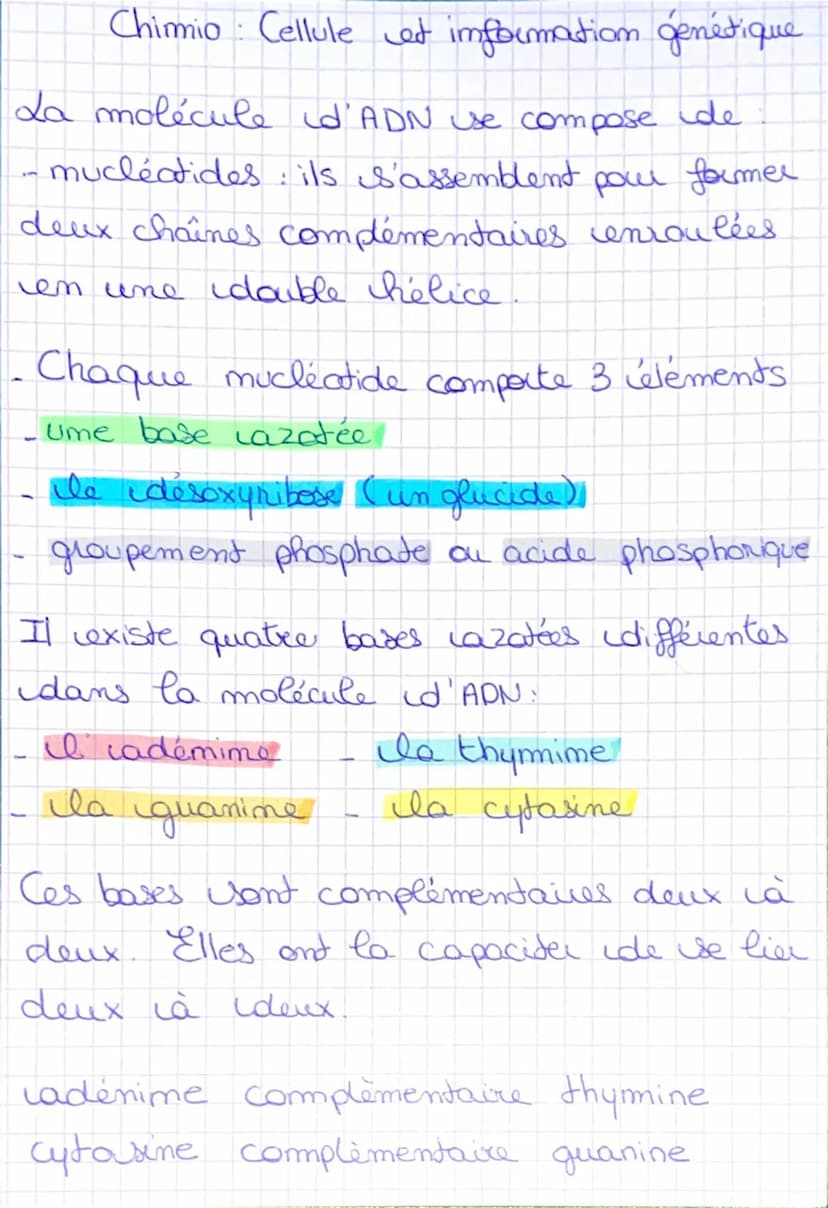 Chimio : Cellule et information génétique
La molécule d'ADN se compose de :
- nucléotides : ils s'assemblent pour former
deux chaînes complémentaires enroulées
en une double hélice.
. Chaque nucléotide comporte 3 éléments
- une base azotée
- le désoxyribose (un glucide)
- groupement phosphate ou acide phosphorique
Il existe quatre bases azotées différentes
dans la molécule d'ADN :
- l'adénine - la thymine
- la guanine - la cytosine
Ces bases sont complémentaires deux à
deux. Elles ont la capaciter de se lier
deux à deux.
adénine complèmentaire thymine
cytosine complèmentaire guanine